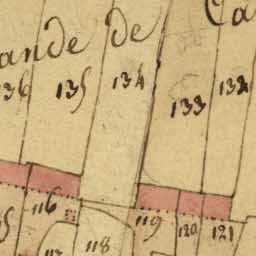 Ca
ande de
136 135 134 133 132
116 119 120 121
118